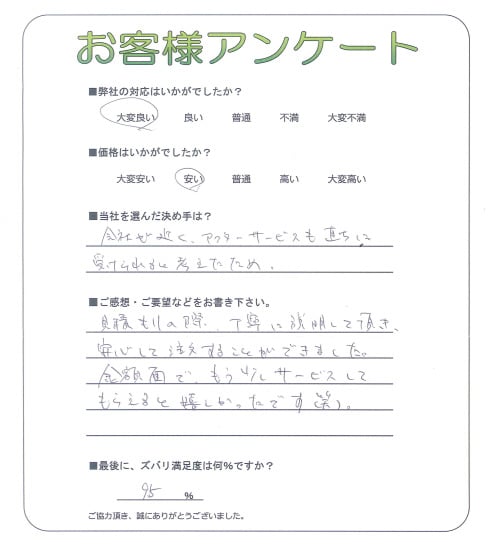 お客様アンケート
■弊社の対応はいかがでしたか?
大変良い 良い 普通 不満 大変不満
■価格はいかがでしたか?
大変安い 安い 普通 高い 大変高い
■当社を選んだ決め手は?
会社が近く、アフターサービスも直ちに
受けられると考えたため。
■ご感想・ご要望などをお書き下さい。
見積もりの際、丁寧に説明して頂き、
安心して注文することができました。
金額面で、もう少しサービスして
もらえると嬉しかったです(笑)。
■最後に、ズバリ満足度は何%ですか?
95 %
ご協力頂き、誠にありがとうございました。